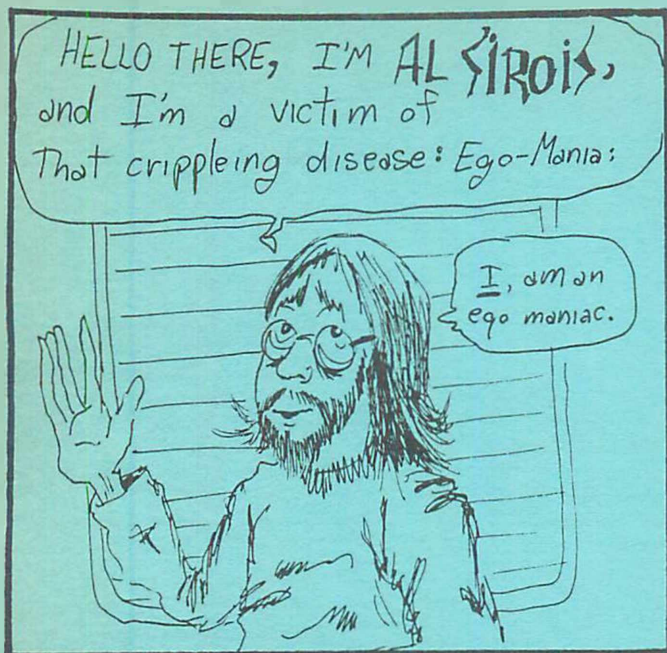 HELLO THERE, I'M AL SIROIS,
and I'm a victim of
That crippleing disease: Ego-Mania:
I, am an
ego maniac.